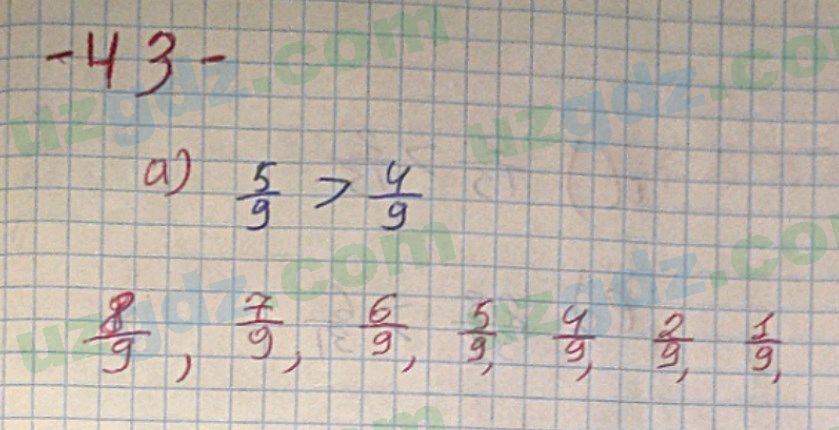 -43-
a) 5/9 > 4/9
8/9, 7/9, 6/9, 5/9, 4/9, 2/9, 1/9,
uzgdz.com
uzgdz.com
uzgdz.com
uzgdz.com